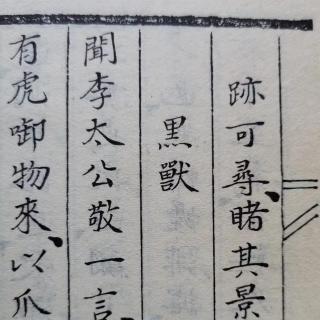 跡可尋、睹其景
黑獸
聞李太公敬一言、
有虎啣物來、以爪